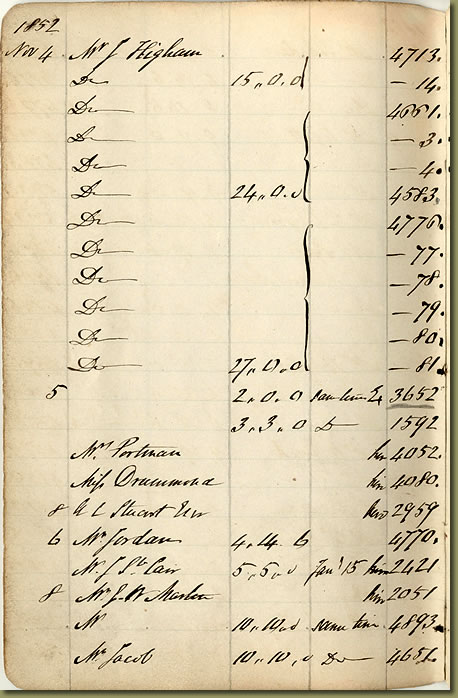 1852
Nov 4 Mr J Higham 4713.
Do 15,,0,,0 – 14.
Do 4661.
Do – 3.
Do – 4.
Do 24,,0,,0 4583.
Do 4776.
Do – 77.
Do – 78.
Do – 79.
Do – 80.
Do 27,,0,,0 – 81.
5 2,,0,,0 same time 3652
3,,3,,0 Do 1592
Mrs Portman 4052.
Miss Drummond 4080.
8 Stuart Esqr 2959
6 Mr Jordan 4,,4 6 4770.
Mr J St Carr 5,,5,,0 Jany 15 2421
8 Mr J W 2051
Mr 10,,10,,0 same time 4893.
Mr Jacob 10,,10,,0 Do 4651.